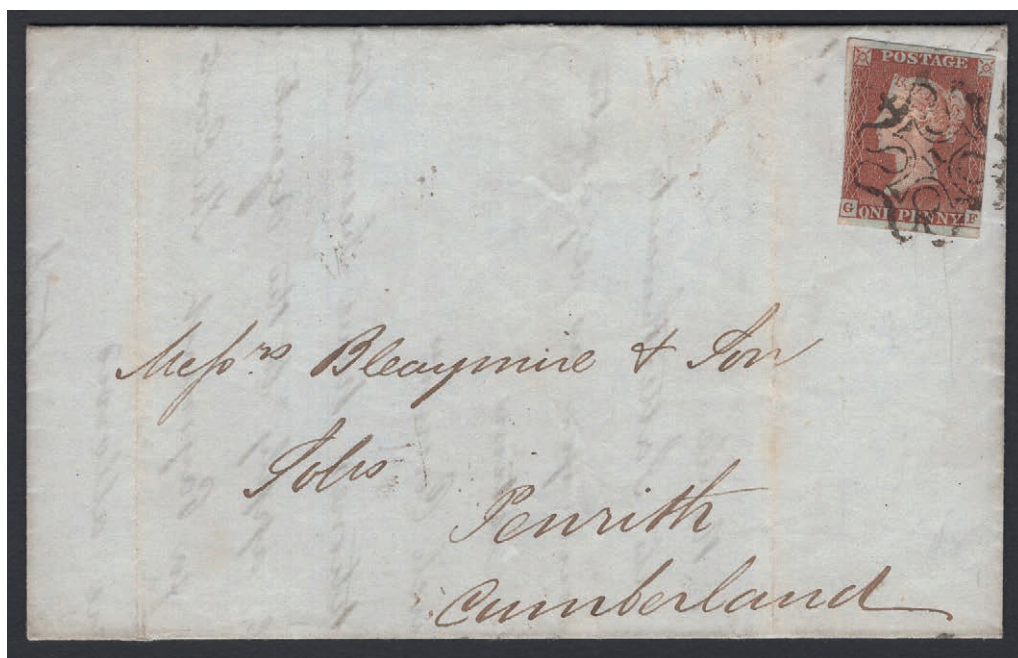 POSTAGE
G ONE PENNY F
Messrs Bleaymire & Son
Solrs
Penrith
Cumberland